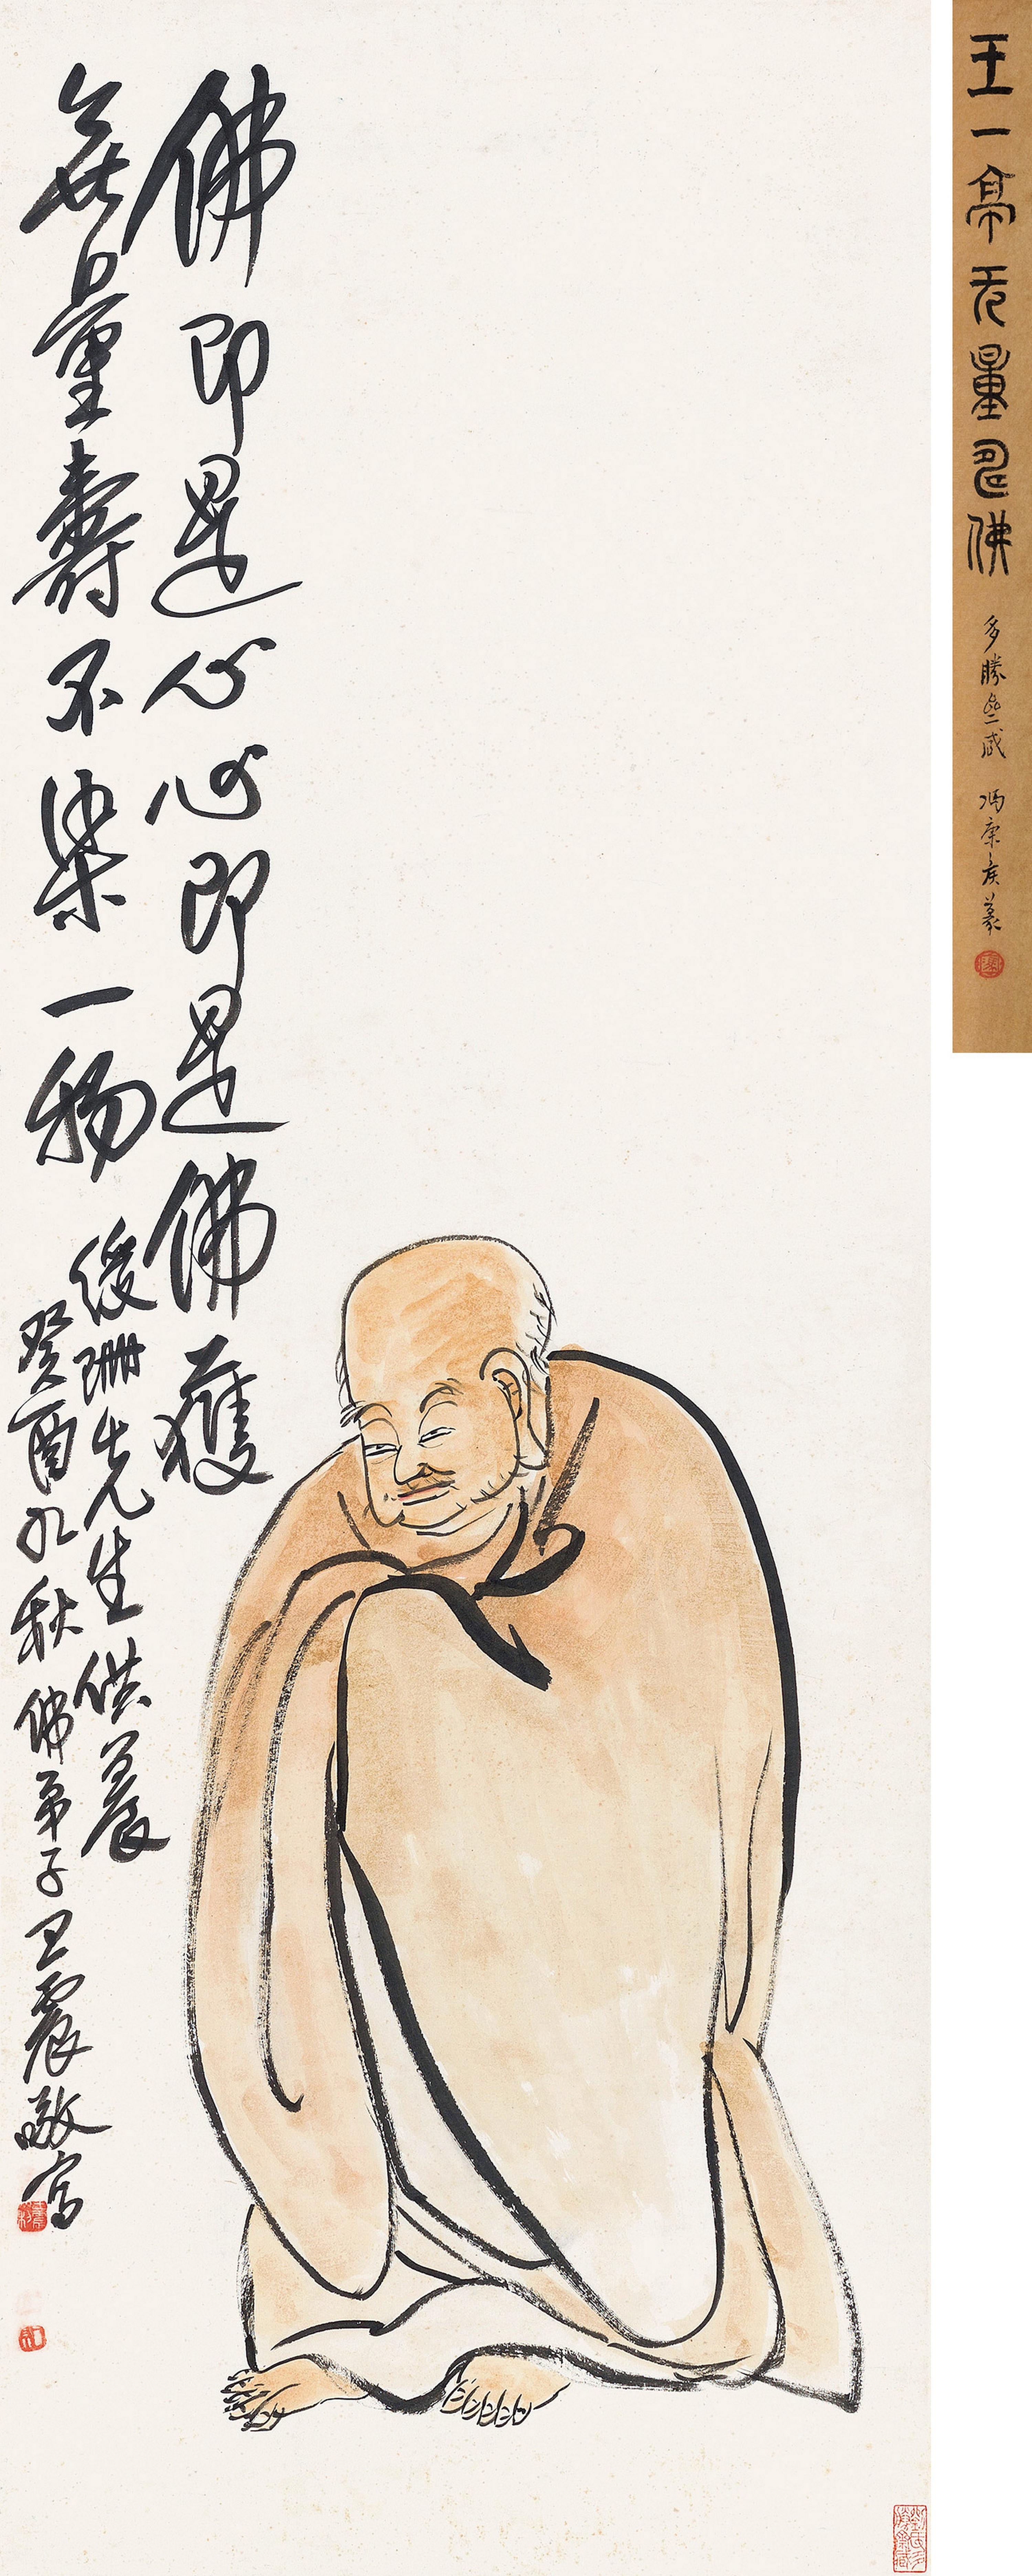 佛即是心心即是佛獲
無量壽不染一物
緩珊先生供養
癸酉九秋佛弟子王震敬寫
王一亭无量壽佛
多勝盦藏 馮康矦篆